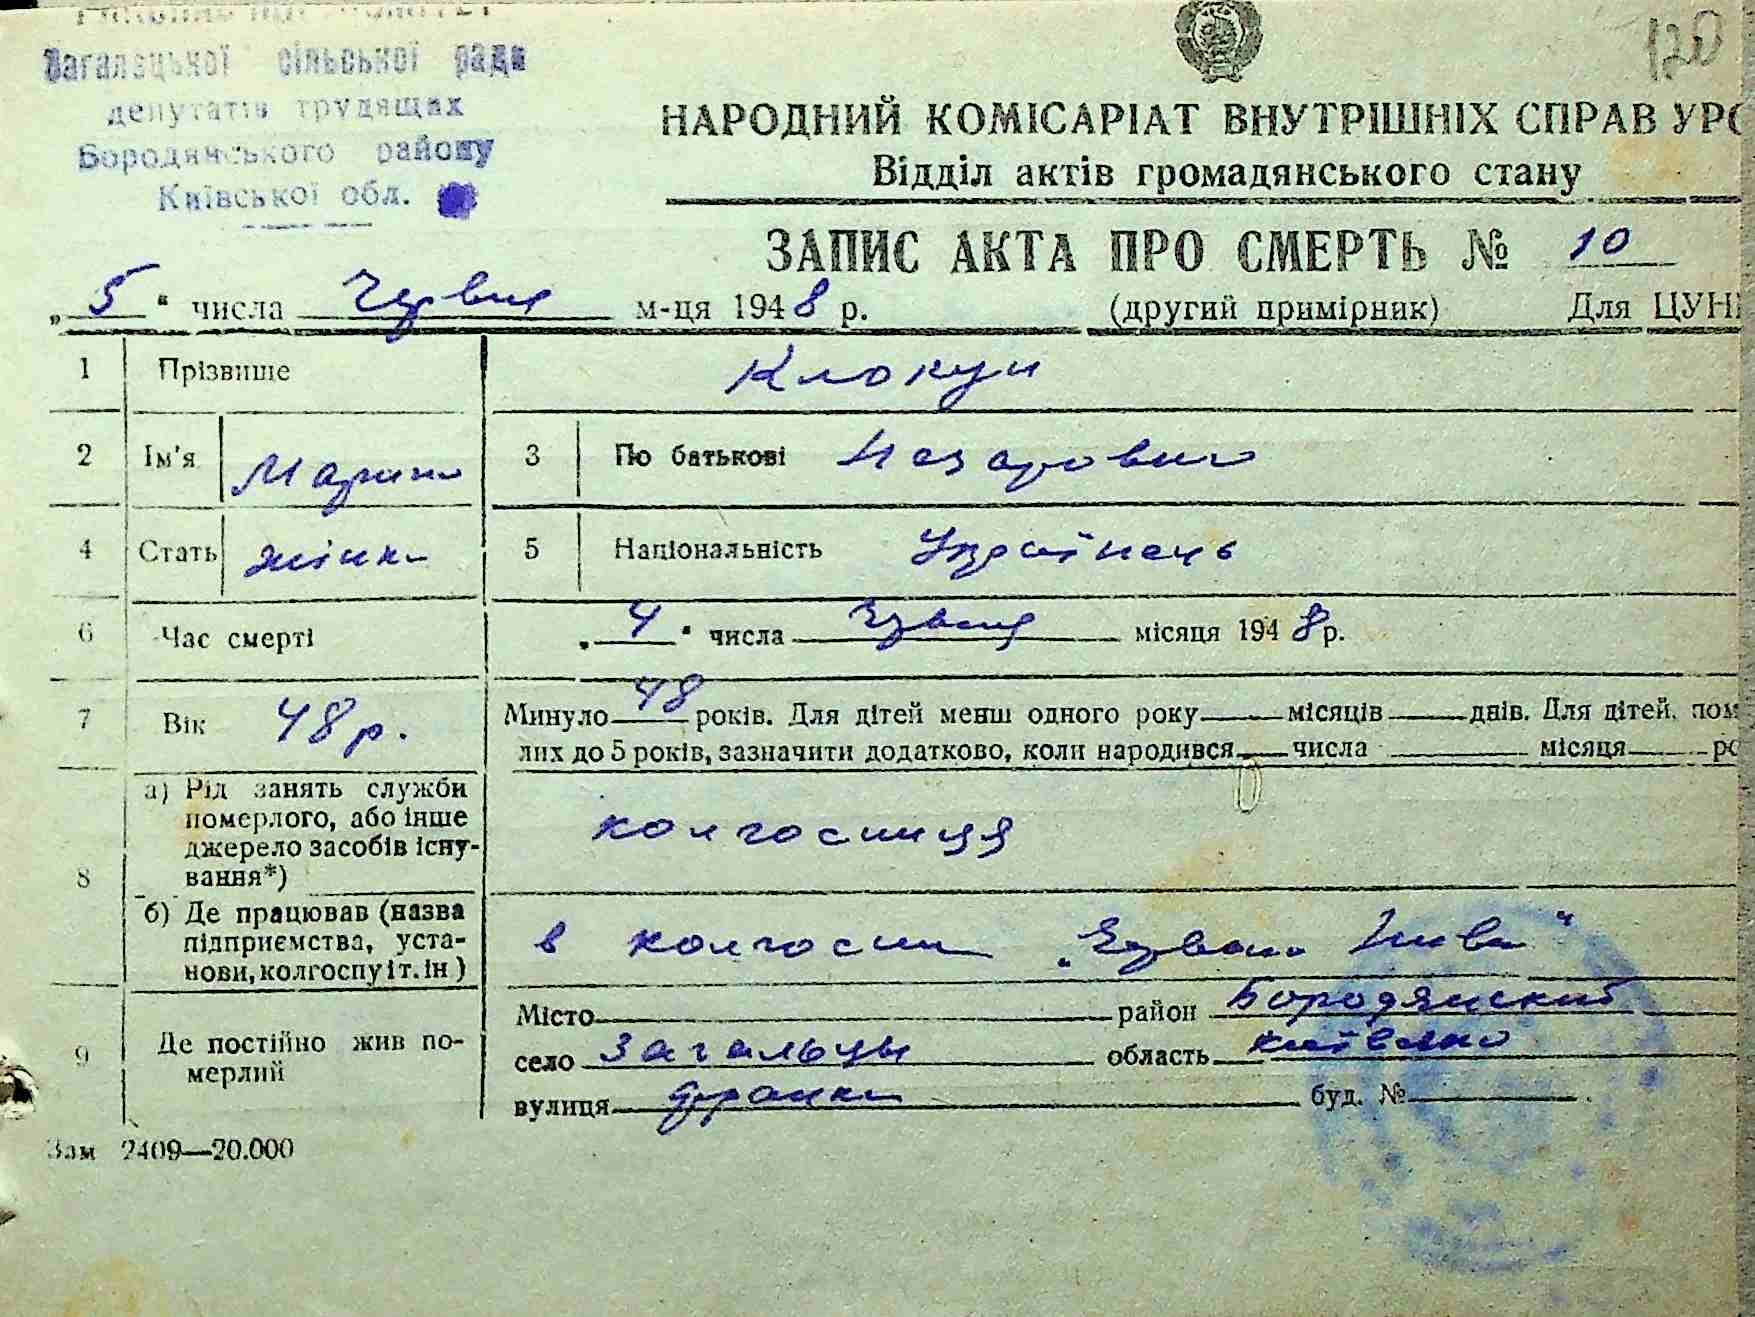 120
Загалецької сільської ради
депутатів трудящах
Бородянського району
Київської обл.
НАРОДНИЙ КОМІСАРІАТ ВНУТРІШНІХ СПРАВ УРС
Відділ актів громадянського стану
ЗАПИС АКТА ПРО СМЕРТЬ № 10
„5“ числа Червня м-ця 1948 р. (другий примірник) Для ЦУН
1 Прізвище Клокун
2 Ім'я Марина 3 По батькові Назаровна
4 Стать жінка 5 Національність Українець
6 Час смерті „4“ числа Червня місяця 1948 р.
7 Вік 48 р. Минуло 48 років. Для дітей менш одного року місяців днів. Для дітей, пом
лих до 5 років, зазначити додатково, коли народився числа місяця ро
8 а) Рід занять служби
померлого, або інше
джерело засобів існу-
вання*)
колгоспниця
б) Де працював (назва
підприємства, уста-
нови, колгоспу і т. ін)
в колгоспі „Червона Нива“
9 Де постійно жив по-
мерлий
Місто район Бородянский
село Загальцы область
вулиця буд. №
Зам 2409—20.000